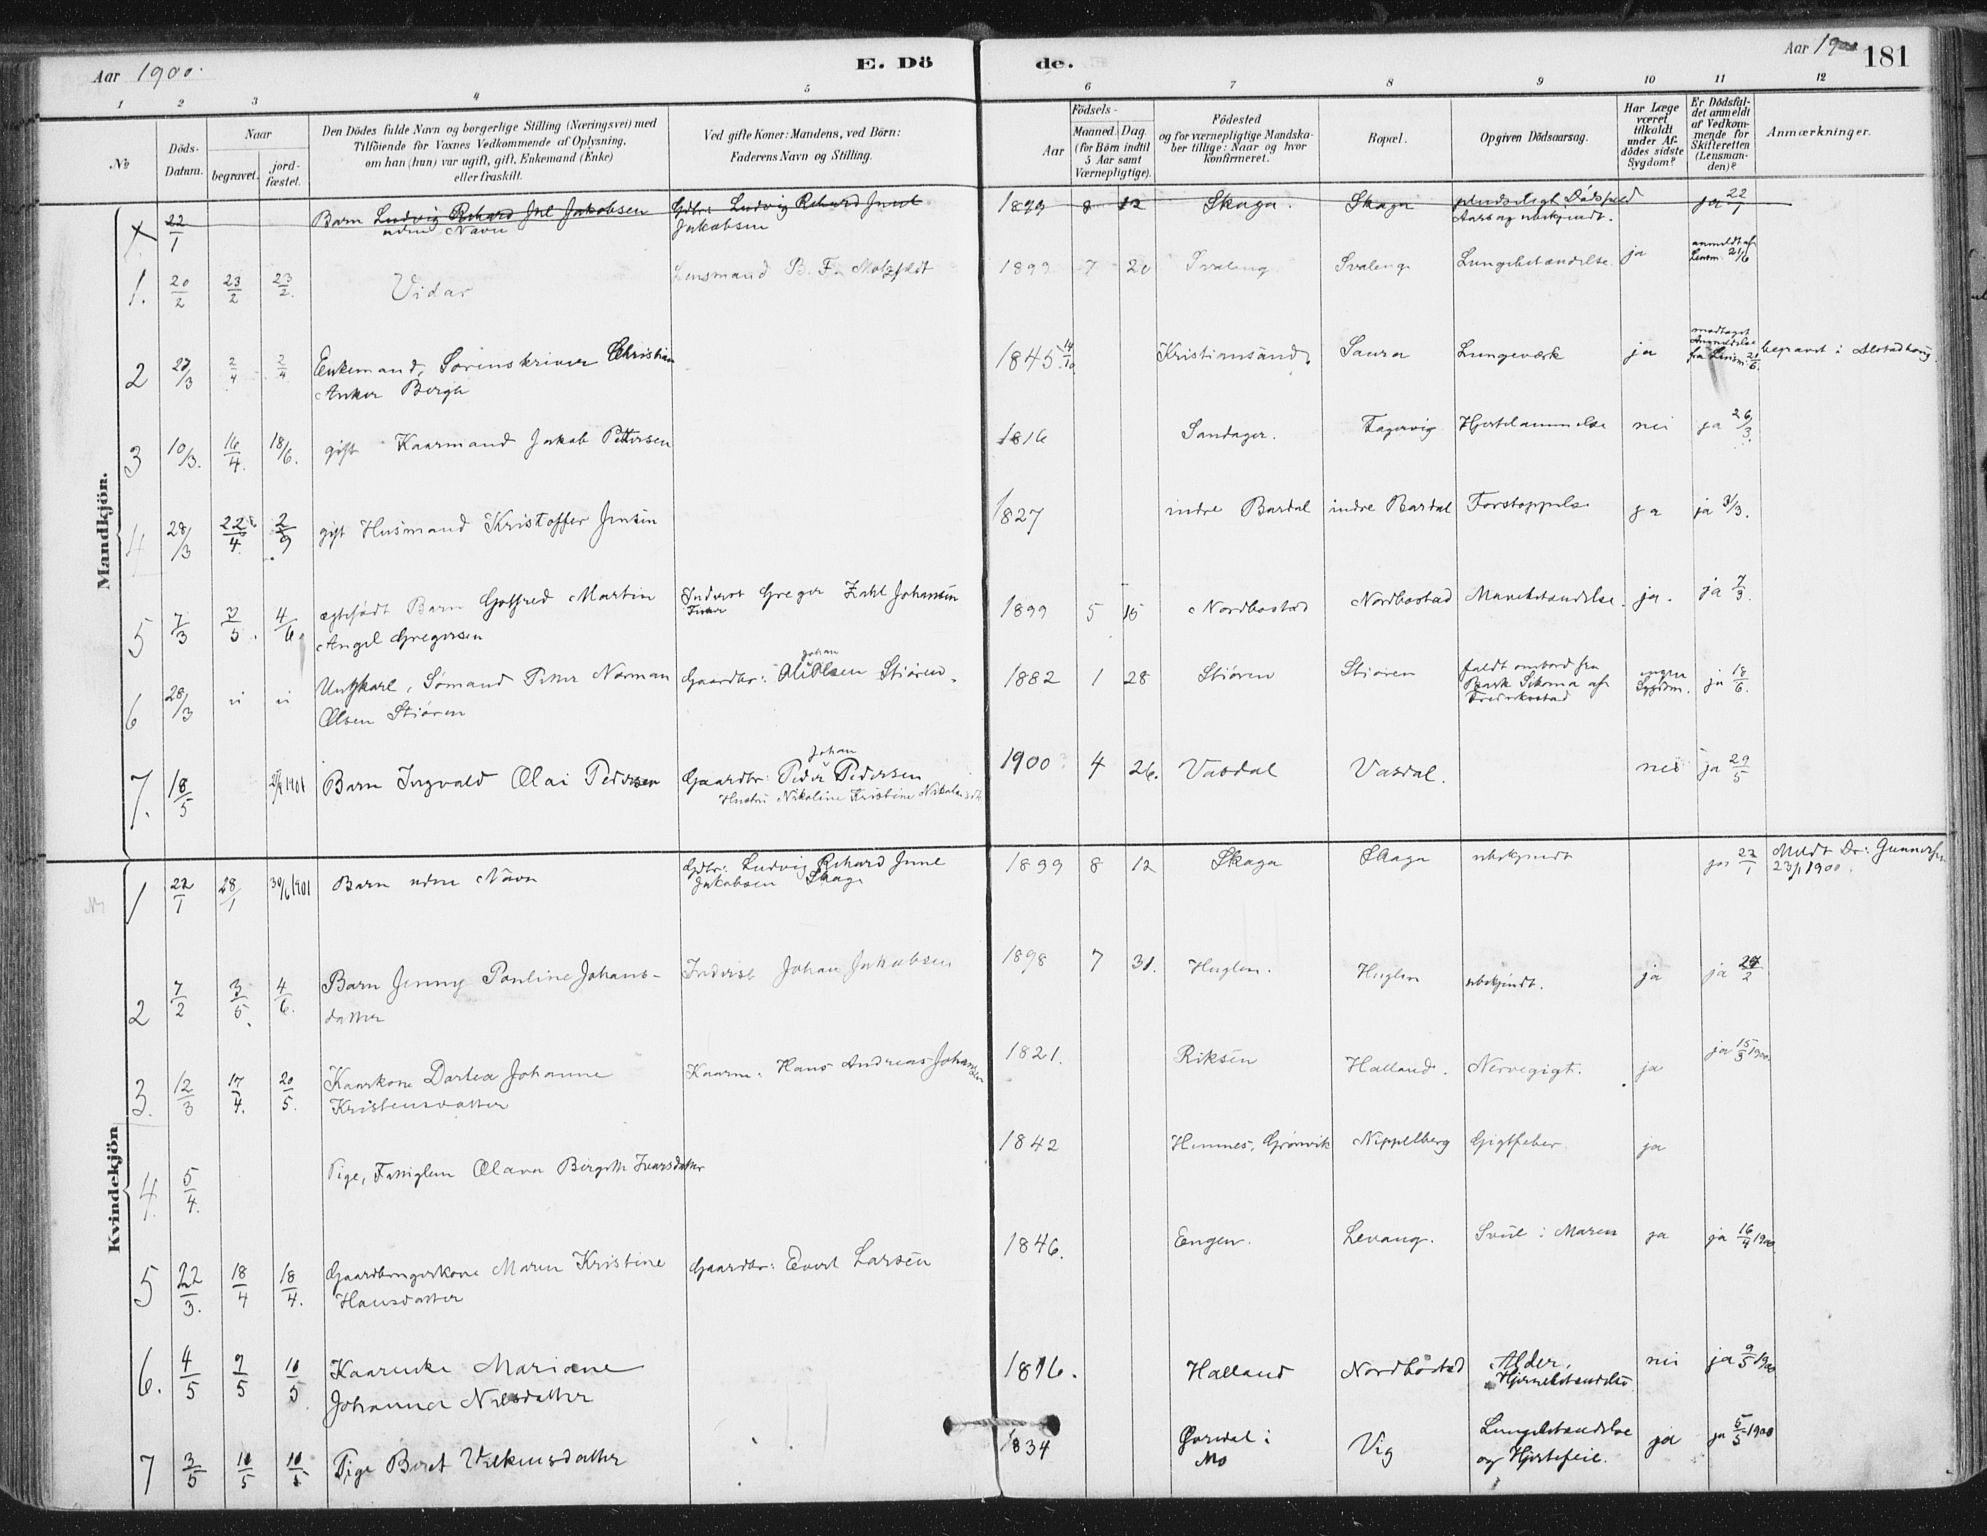 Aar 1900.
E. Dö
de.
Aar 1900
181
1 2 3 4 5 6 7 8 9 10 11 12
No
Döds-
Datum.
Naar
begravet.
jord-
fæstet.
Den Dödes fulde Navn og borgerlige Stilling (Næringsvei) med
Tilföiende for Voxnes Vedkommende af Oplysning,
om han (hun) var ugift, gift, Enkemand (Enke)
eller fraskilt.
Ved gifte Koner: Mandens, ved Börn:
Faderens Navn og Stilling.
Födsels-
Aar
Maaned. Dag.
(for Börn indtil
5 Aar samt
Værnepligtige).
Födested
og for værnepligtige Mandska-
ber tillige: Naar og hvor
konfirmeret.
Bopæl.
Opgiven Dödsaarsag.
Har Læge
været
tilkaldt
under Af-
dödes sidste
Sygdom?
Er Dödsfal-
det anmeldt
af Vedkom-
mende for
Skifteretten
(Lensman-
den)?
Anmærkninger.
Mandkjön.
1. 22/1 Barn Ludvig Rikard Jul Jakobsen Gdbr: Ludvig Rikard Juul 1899 8 12 Skaga. Skaga pludseligt Dödsfald ja 22/1
uden Navn Jakobsen Aarsag ubekjendt.
1. 20/2 23/2 23/2 Vidar Lensmand B. F. Motzfeldt 1899 7 20 Svaleng Svaleng Lungebetændelse ja anmeldt af
Lensm. 21/6
2 27/3 2/4 2/4 Enkemand, Sorenskriver Christian 1845 14/10 Kristiansund. Saura Lungeværk ja modtaget
Anmeldelse
fra Lensm. 21/6 begravet i Alstadhoug.
Anker Bergh
3 10/3. 16/4. 18/6. gift Kaarmand Jakob Pettersen 1816 Sandager. Fagervig Hjertelammelse nei ja 26/3.
4 28/3 22/4. 2/9 gift Husmand Kristoffer Jensen 1827 indre Bardal indre Bardal Forstoppelse ja ja 3/3.
5 7/3 3/5. 4/6. ægtefødt Barn Gotfred Martin Inderst Greger Zahl Johansen 1899 5 15 Nordbostad Nordbostad Mavebetændelse. ja. ja 7/3.
Angel Gregersen
6 28/3 " " Ungkarl, Sømand Peter Norman Gaardbr: Johan Olsen Stiøren. 1882 1 28 Stiøren Stiøren faldt ombord fra
Bark Sikoma af
Fredrikstad ingen
Sygdom. ja 18/6.
Olsen Stiøren
7. 18/5 1901 Barn Ingvald Olai Pedersen Gaardbr: Peder Johan Pedersen 1900 4 26. Vasdal Vasdal. nei ja 29/5
Hustru Nikoline Kristine
Kvindekjön
1 22/1 28/1 30/6 1901 Barn uden Navn Gdbr: Ludvig Rikard June 1899 8 12 Skaga Skaga ubekjendt ja 22/1 Meldt Dr: Gunnersen
Jakobsen Skaga 23/1 1900.
2 7/2 3/5. 4/6. Barn Jenny Pauline Johans- Inderst Johan Jakobsen 1898 7 31. Huglen. Huglen ubekjendt. ja ja 24/2
datter
3. 12/3 17/4. 20/5. Kaarkone Dortea Johanne Kaarm. Hans Andreas Johansen 1821. Riksen Halland. Nervegigt. ja ja 15/3 1900
Kristensdatter
4. 5/4. Pige, Fattiglem Olava Birgitte Ivarsdatter 1842 Hemnes, Grønvik Nippelberg Gigtfeber. ja
5 22/3. 18/4 18/4. Gaardbrugerskone Maren Kristine Gaardbr: Evert Larsen 1846. Engen. Levang. Svul i Maven ja ja 16/4 1900
Hansdatter
6. 4/5 9/5 10/5 Kaarenke Mariane 1816. Halland Nordbostad Alder, nei ja 9/5 1900
Johanna Nilsdatter Hjernebetændelse
7 3/5 10/5 10/5 Pige Beret Vilkensdatter 1834 i Vig Lungebetændelse ja ja 5/5 1900
Mo og Hjertefeil.